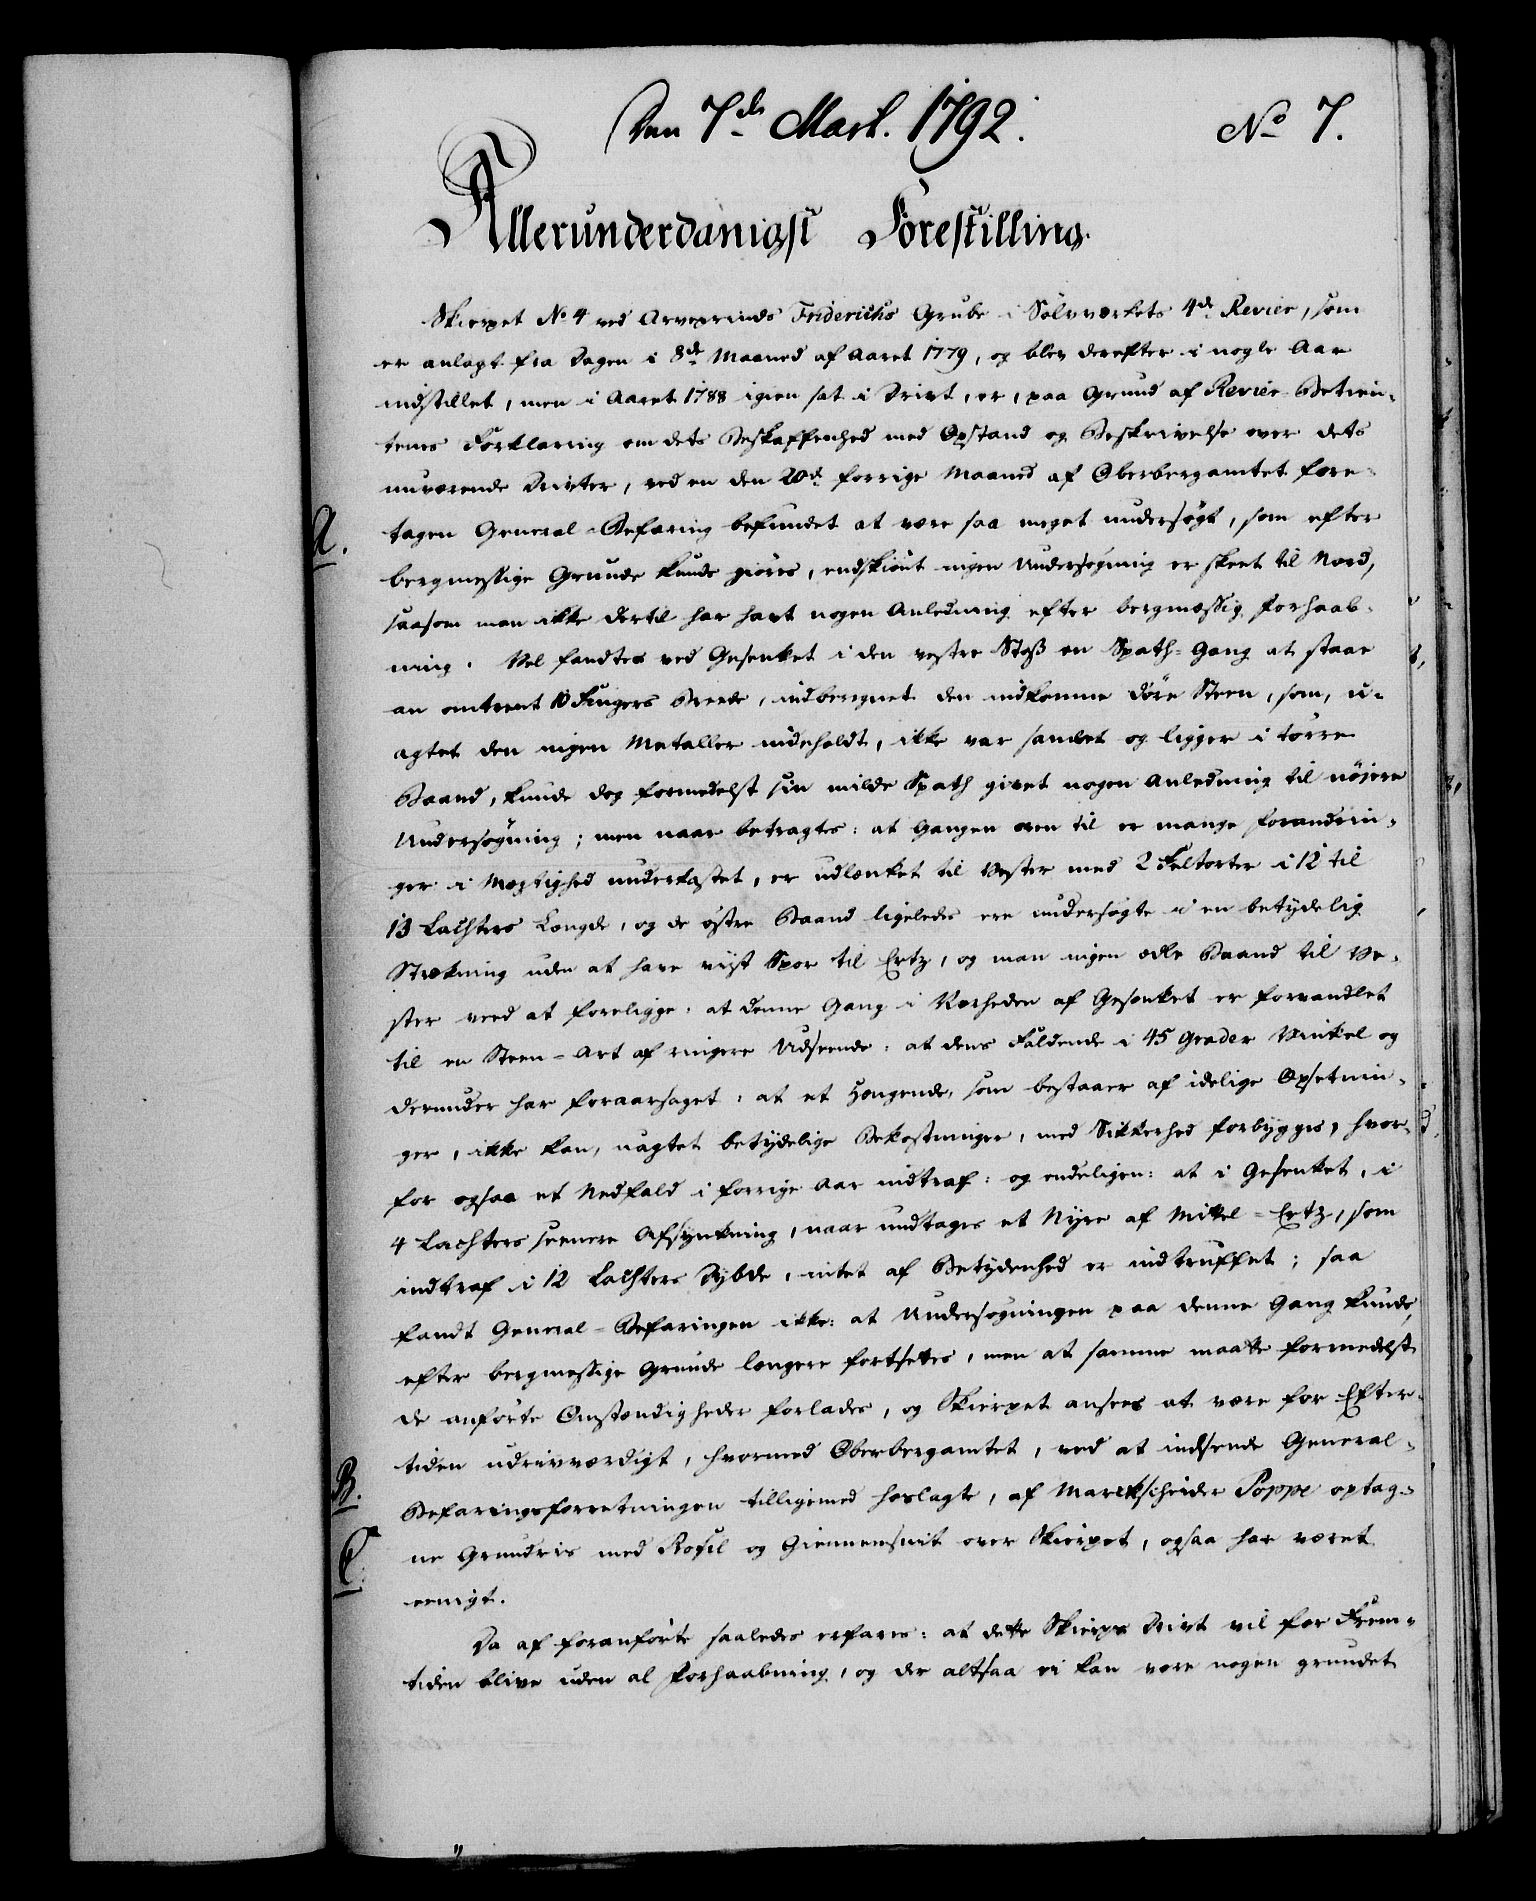 Den 7de Mart. 1792.
No 7.
Allerunderdanigst Forestilling.
Skierpet No 4 ved Arveprinds Friderichs Grube i Sølvværkets 4de Revier, som
er anlagt fra Dagen i 8de Maaned af Aaret 1779, og blev derefter i nogle Aar
indstillet, men i Aaret 1788 igien sat i Drivt, er, paa Grund af Revier-Betien-
ternes Forklaring om dets Beskaffenhed med Opstand og Beskrivelse over dets
nuværende Drivter, ved en den 20de forrige Maaned af Oberbergamtet fore-
A.
tagen General-Befaring befundet at være saa meget undersøgt, som efter
bergmessige Grunde kunde giøres, endskiønt ingen Undersøgning er skeet til Nord,
saasom man ikke dertil har havt nogen Anledning efter bergmæssig Forhaab-
ning. Vel fandtes ved Gesenket i den vestre Stoß en Spath-Gang at staae
an omtrent 10 Fingers Brede, indberegnet den indkomne døve Steen, som, u-
agtet den ingen Metaller indeholdt, ikke var samlet og ligger i tørre
Baand, kunde dog formedelst sin milde Spath givet nogen Anledning til nøjere
Undersøgning; men naar betragtes: at Gangen oven til er mange Forandrin-
ger i Mægtighed underkastet, er udlænket til Vester med 2 Feltorter i 12 til
13 Lachters Længde, og de østre Baand ligeledes ere undersøgte i en betydelig
Strækning uden at have viist Spor til Ertz, og man ingen ædle Baand til Ve-
ster veed at foreligge: at denne Gang i Nærheden af Gesenket er forvandlet
til en Steen-Art af ringere Udseende: at dens Faldende i 45 Grader Vinkel og
derunder har foraarsaget: at et Hængende, som bestaaer af idelige Opsetnin-
ger, ikke kan, uagtet betydelige Bekostninger, med Sikkerhed forbygges, hvor-
for ogsaa et Nedfald i forrige Aar indtraf: og endeligen: at i Gesenket, i
4 Lachters seenere Afsynkning, naar undtages et Nyre af Mittel-Ertz, som
indtraf i 12 Lachters Dybde, intet af Betydenhed er indtruffet; saa
fandt General-Befaringen ikke: at Undersøgningen paa denne Gang kunde,
efter bergmessige Grunde længere fortsettes, men at samme maatte formedelst
de anførte Omstændigheder forlades, og Skierpet ansees at være for Efter-
tiden udrivværdigt, hvormed Oberbergamtet, ved at indsende General-
B.
Befaringsforretningen tilligemed hoslagte, af Markscheider Poppe optag-
C.
ne Grundris med Profil og Giennemsnit over Skierpet, ogsaa har været
eenigt.
Da af foranførte saaledes erfares: at dette Skierps Drivt vil for Frem-
tiden blive uden al Forhaabning, og der altsaa ei kan være nogen grundet